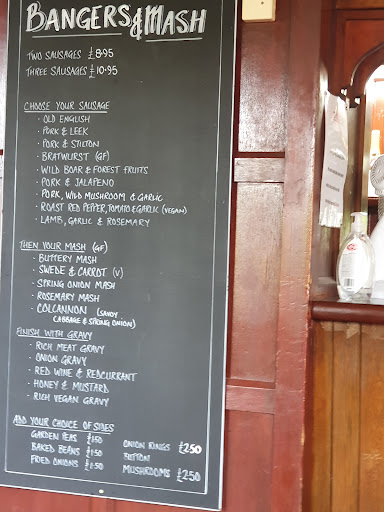 BANGERS & MASH
TWO SAUSAGES £8·95
THREE SAUSAGES £10·95
CHOOSE YOUR SAUSAGE
· OLD ENGLISH
· PORK & LEEK
· PORK & STILTON
· BRATWURST (GF)
· WILD BOAR & FOREST FRUITS
· PORK & JALAPENO
· PORK, WILD MUSHROOM & GARLIC
· ROAST RED PEPPER, TOMATO & GARLIC (VEGAN)
· LAMB, GARLIC & ROSEMARY
THEN YOUR MASH (GF)
· BUTTERY MASH
· SWEDE & CARROT (V)
· SPRING ONION MASH
· ROSEMARY MASH
· COLCANNON (SAVOY
CABBAGE & SPRING ONION)
FINISH WITH GRAVY
· RICH MEAT GRAVY
· ONION GRAVY
· RED WINE & REDCURRANT
· HONEY & MUSTARD
· RICH VEGAN GRAVY
ADD YOUR CHOICE OF SIDES
GARDEN PEAS £1·50
BAKED BEANS £1·50
FRIED ONIONS £1·50
ONION RINGS £2·50
BUTTON
MUSHROOMS £2·50